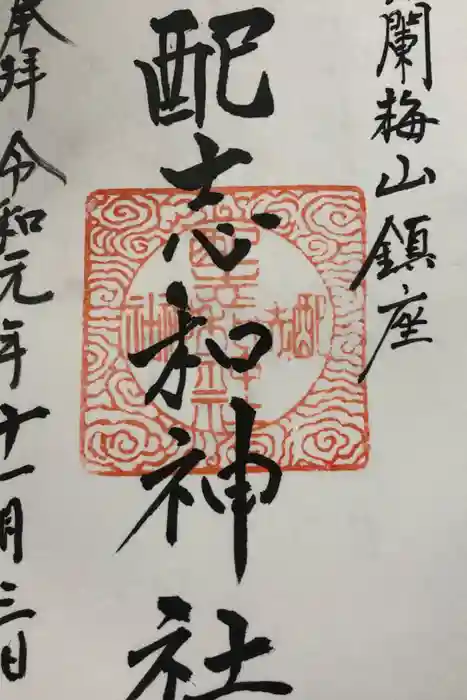 蘭梅山鎮座
配志和神社
奉拝 令和元年十一月三日